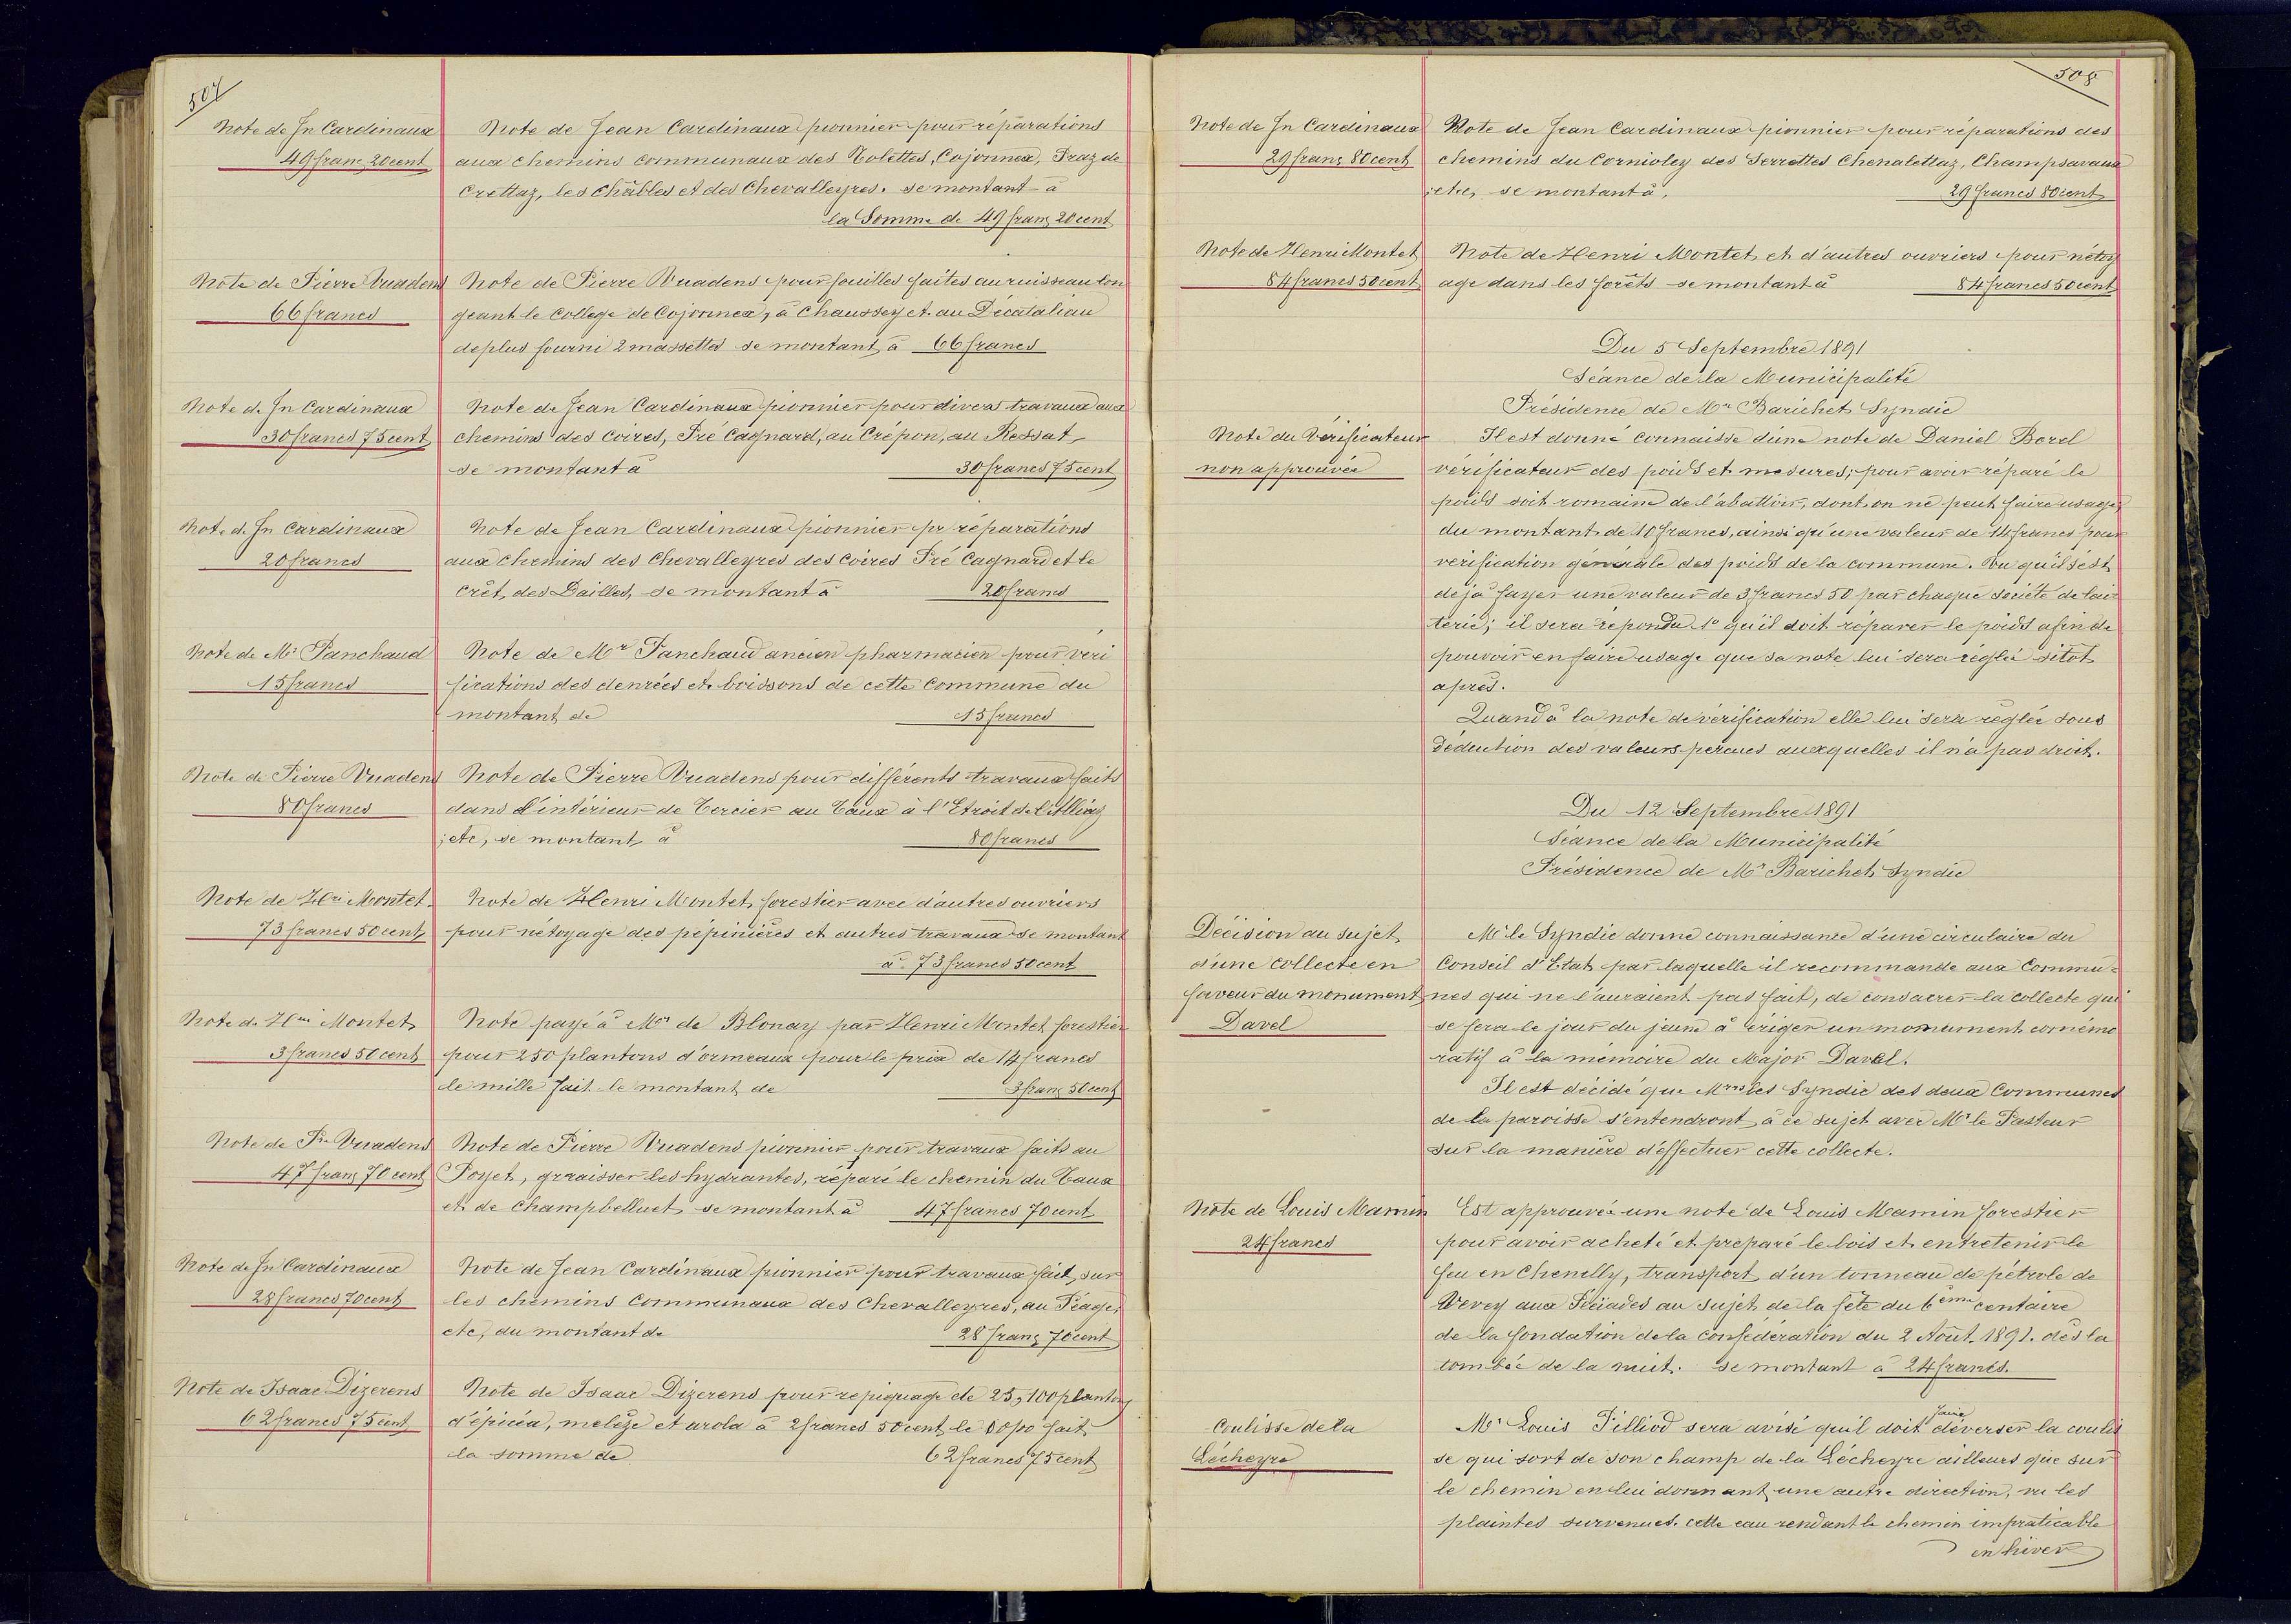 507
Note de Jn Cardinaux
49 franc 20 cent
Note de Jean Cardinaux pionnier pour réparations
aux chemins communaux des Tolettes, Cojonnex, Praz de
Crettaz, les Châbles et des Chevalleyres. se montant à
la Somme de 49 franc 20 cent
Note de Pierre Vuadens
66 francs
Note de Pierre Vuadens pour fouilles faites au ruisseau lon
geant le College de Cojonnex, à Chaussey et au Décataliau
deplus fourni 2 massettes se montant à 66 francs
Note de Jn Cardinaux
30 francs 75 cent
Note de Jean Cardinaux pionnier pour divers travaux aux
chemins des Coires, Pré Cagnard, au Crépon, au Ressat
se montant à 30 francs 75 cent
Note de Jn Cardinaux
20 francs
Note de Jean Cardinaux pionnier pr réparations
aux chemins des Chevalleyres des Coires Pré Cagnard et le
Crêt des Dailles, se montant à 20 francs
Note de Mr Panchaud
15 francs
Note de Mr Panchaud ancien pharmacien pour veri
fications des denrées et boissons de cette Commune du
montant de 15 francs
Note de Pierre Vuadens
80 francs
Note de Pierre Vuadens pour différents travaux faits
dans l'intérieur de Tercier au Taux à l'Etroit de l'Alliaz
; etc, se montant à 80 francs
Note de Hri Montet
73 francs 50 cent
Note de Henri Montet forestier avec d'autres ouvriers
pour nétoyage des pépinières et autres travaux se montant
à 73 francs 50 cent
Note de Hri Montet
3 francs 50 cent
Note payé à Mr de Blonay par Henri Montet forestier
pour 250 plantons d'ormeaux pour le prix de 14 francs
le mille fait le montant de 3 franc 50 cent
Note de Pre Vuadens
47 franc 70 cent
Note de Pierre Vuadens pionnier pour travaux faits au
Poyet, graaisser les hydrantes, réparé le chemin du Taux
et de Champbelluet se montant à 47 francs 70 cent
Note de Jn Cardinaux
28 francs 70 cent
Note de Jean Cardinaux pionnier pour travaux fait, sur
les chemins Communaux des Chevalleyres, au Péage,
etc, du montant de 28 franc 70 cent
Note de Isaac Dizerens
62 francs 75 cent
Note de Isaac Dizerens pour repiquage de 25,100 plantons
d'épicéa, meleze et arola à 2 francs 50 cent le 00/00 fait
la somme de 62 francs 75 cent
508
Note de Jn Cardinaux
29 franc 80 cent
Note de Jean Cardinaux pionnier pour réparations des
chemins du Cornioley des Serrettes Chenalettaz, Champsavaux
; etc, se montant à, 29 francs 80 cent
Note de Henri Montet
84 francs 50 cent
Note de Henri Montet et d'autres ouvriers pour nétoy
age dans les forêts se montant à 84 francs 50 cent
Du 5 Septembre 1891
Séance de la Municipalité
Présidence de Mr Barichet Syndic
Note du Vérificateur
non approuvée
Il est donné connaisse d'une note de Daniel Borel
vérificateur des poids et mesures; pour avoir réparé le
poids soit romaine de l'abattoir, dont on ne peut faire usage,
du montant de 10 francs, ainsi qu'une valeur de 14 francs pour
verification générale des poids de la commune. Vu qu'il s'est
déjà fayer une valeur de 3 francs 50 par chaque société de lai=
terie; il sera répondu 1o qu'il doit réparer le poids afin de
pouvoir en faire usage que sa note lui sera réglée sitot
après.
Quand à la note de vérification elle lui sera réglée sous
déduction des valeurs percues auxquelles il n'a pas droit.
Du 12 Septembre 1891
Séance de la Municipalité
Présidence de Mr Barichet Syndic
Décision au sujet
d'une Collecte en
faveur du monument
Davel
Mr le Syndic donne connaissance d'une circulaire du
Conseil d'Etat par laquelle il recommande aux Commu=
nes qui ne l'auraient pas fait, de consacrer la collecte qui
se fera le jour du jeune à ériger un monument comémo
ratif à la mémoire du Major Davel.
Il est décidé que Mrrs les Syndic des deux Communes
de la paroisse s'entendront à ce sujet avec Mr le Pasteur
sur la manière d'effectuer cette collecte.
Note de Louis Mamin
24 francs
Est approuvée une note de Louis Mamin forestier
pour avoir acheté et preparé le bois et entretenir le
feu en Chenelly, transport d'un tonneau de pétrole de
Vevey aux Pléiades au sujet de la fête du 6ème centaire
de la fondation de la confédération du 2 Aout 1891. dès la
tombée de la nuit. se montant à 24 francs.
Coulisse de la
Lécheyre
Mr Louis Pilliod sera avisé qu'il doit faire déverser la coulis
se qui sort de son champ de la Lécheyre ailleurs que sur
le chemin en lui donnant une autre direction, vu les
plaintes survenues. cette eau rendant le chemin impraticable
en hiver